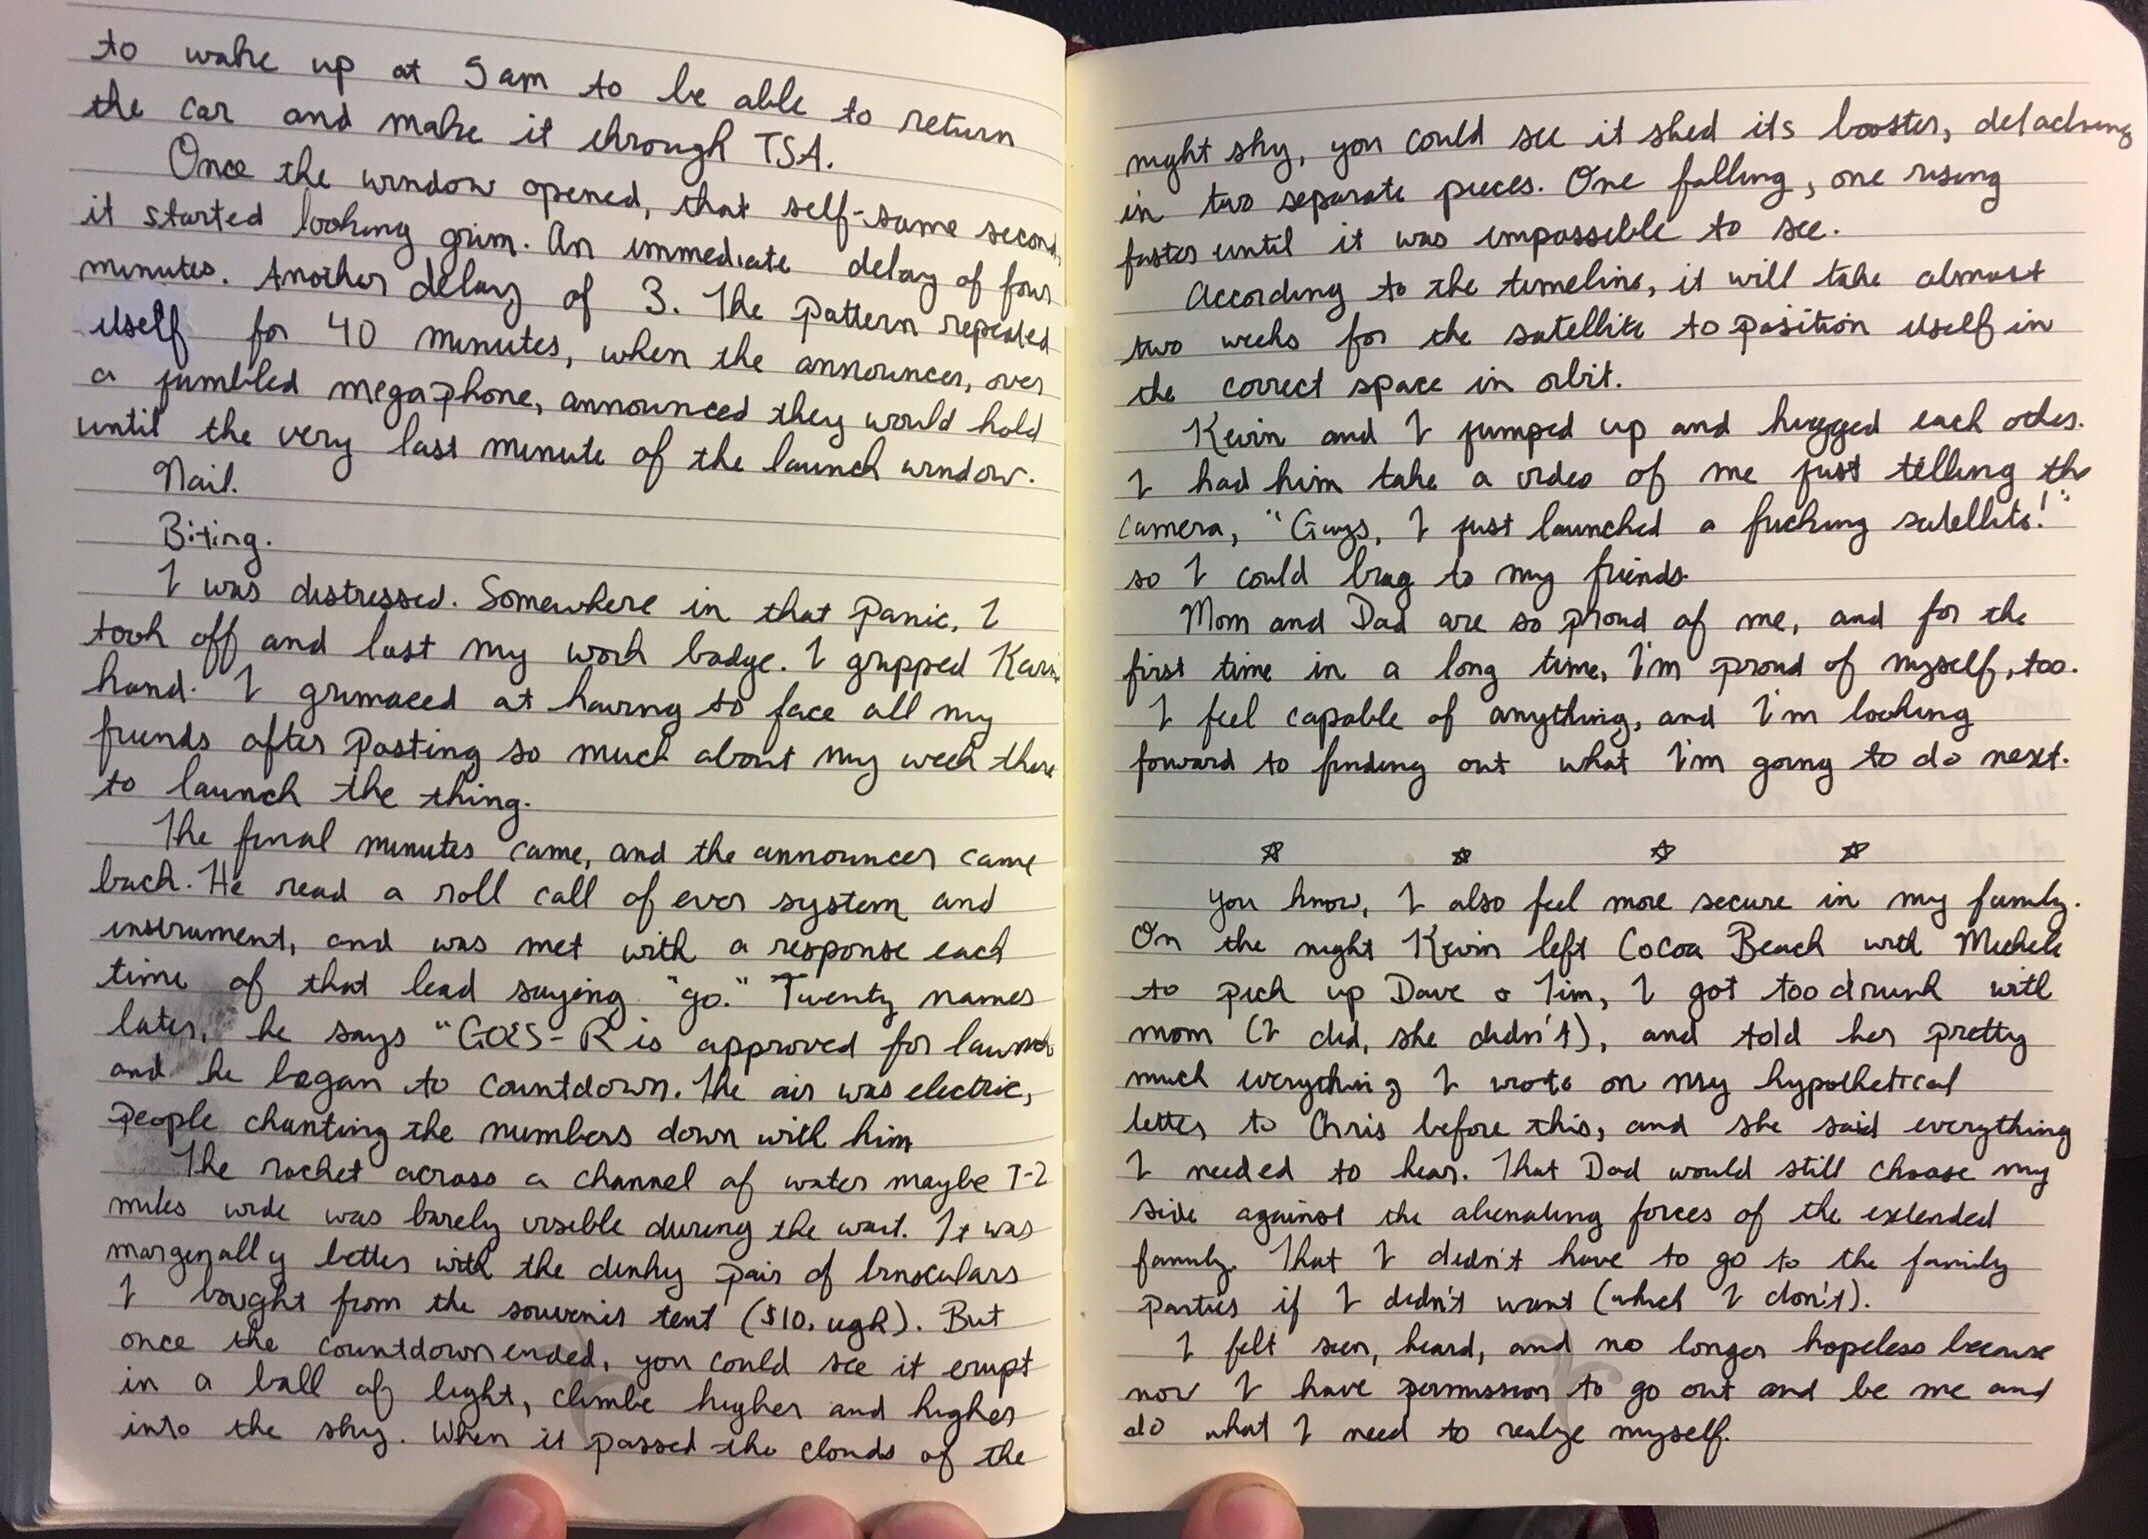 to wake up at 5am to be able to return
the car and make it through TSA.
Once the window opened, that self-same second,
it started looking grim. An immediate delay of four
minutes. Another delay of 3. The pattern repeated
itself for 40 minutes, when the announcer, over
a jumbled megaphone, announced they would hold
until the very last minute of the launch window.
Nail.
Biting.
I was distressed. Somewhere in that panic, I
took off and lost my work badge. I gripped
hand. I grimaced at having to face all my
friends after posting so much about my week there
to launch the thing.
The final minutes came, and the announcer came
back. He read a roll call of ever system and
instrument, and was met with a response each
time of that lead saying "go." Twenty names
later, he says "GOES-R is approved for launch
and he began to countdown. The air was electric,
people chanting the numbers down with him
The rocket across a channel of water maybe 1-2
miles wide was barely visible during the wait. It was
marginally better with the dinky pair of binoculars
I bought from the souvenir tent ($10, ugh). But
once the countdown ended, you could see it erupt
in a ball of light, climbe higher and higher
into the sky. When it passed the clouds of the
night sky, you could see it shed its booster, detaching
in two separate pieces. One falling, one rising
faster until it was impossible to see.
According to the timeline, it will take almost
two weeks for the satellite to position itself in
the correct space in orbit.
Kevin and I jumped up and hugged each other.
I had him take a video of me just telling the
camera, "Guys, I just launched a fucking satellite!"
so I could brag to my friends.
Mom and Dad are so proud of me, and for the
first time in a long time, I'm proud of myself, too.
I feel capable of anything, and I'm looking
forward to finding out what I'm going to do next.
☆ ☆ ☆ ☆
You know, I also feel more secure in my family.
On the night Kevin left Cocoa Beach with Michele
to pick up Dave & Tim, I got too drunk with
mom (I did, she didn't), and told her pretty
much everything I wrote on my hypothetical
letter to Chris before this, and she said everything
I needed to hear. That Dad would still choose my
side against the alienating forces of the extended
family. That I didn't have to go to the family
parties if I didn't want (which I don't).
I felt seen, heard, and no longer hopeless because
now I have permission to go out and be me and
do what I need to realize myself.